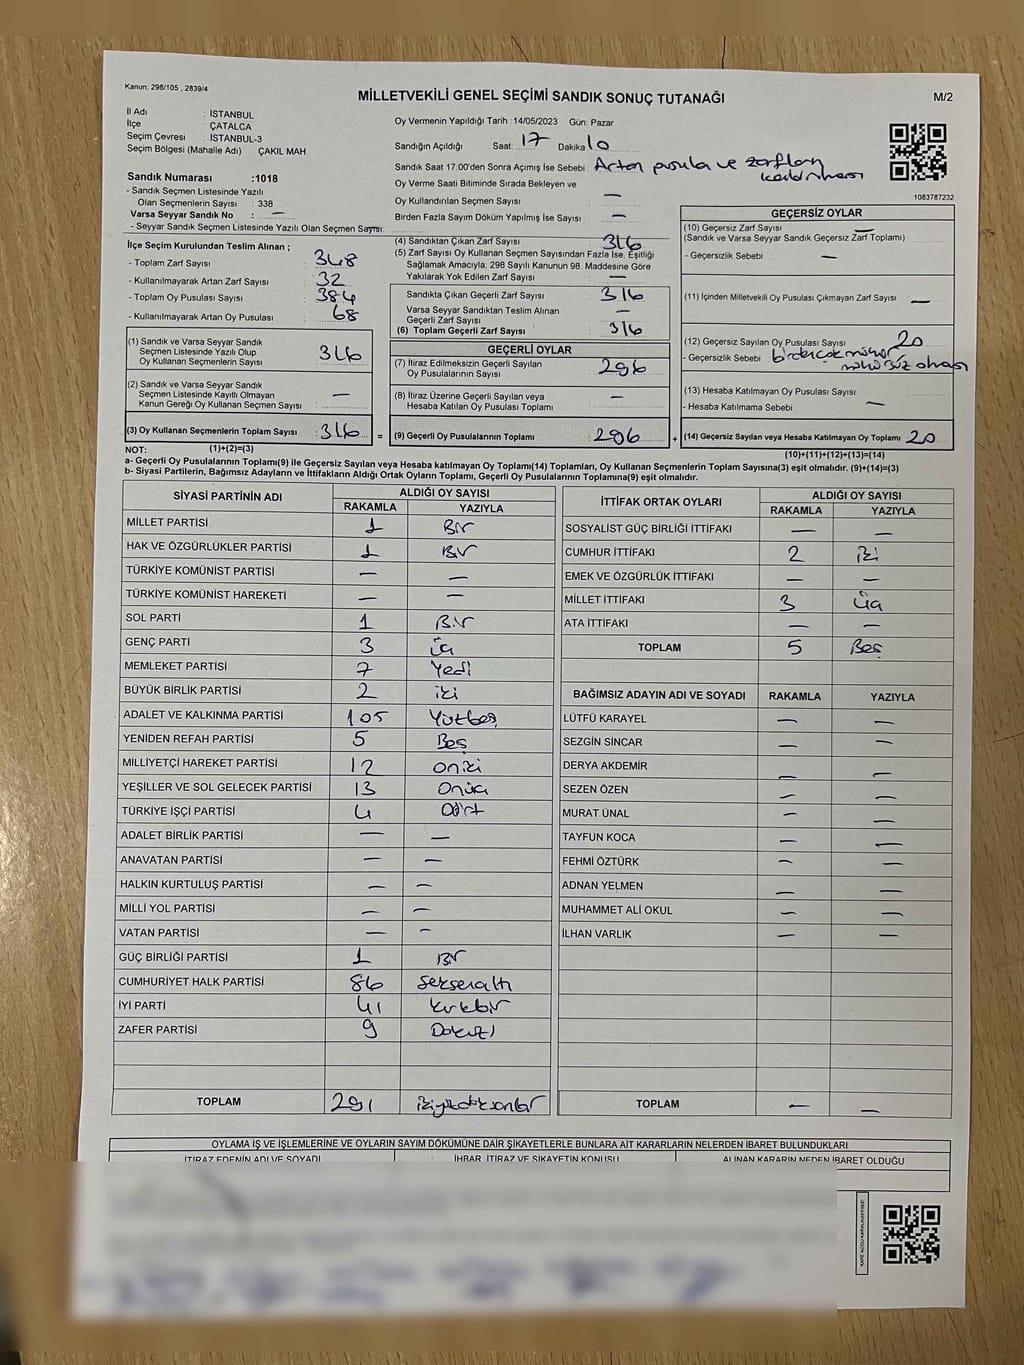 Kanun; 298/105 , 2839/4
MİLLETVEKİLİ GENEL SEÇİMİ SANDIK SONUÇ TUTANAĞI
M/2
İl Adı : İSTANBUL
İlçe : ÇATALCA
Seçim Çevresi : İSTANBUL-3
Seçim Bölgesi (Mahalle Adı) : ÇAKIL MAH.
Oy Vermenin Yapıldığı Tarih :14/05/2023 Gün: Pazar
Sandığın Açıldığı Saat: 17 Dakika 10
Sandık Saat 17:00'den Sonra Açılmış İse Sebebi : Artan pusula ve zarfların
Oy Verme Saati Bitiminde Sırada Bekleyen ve
Oy Kullandırılan Seçmen Sayısı : —
Birden Fazla Sayım Döküm Yapılmış İse Sayısı : —
1083787232
Sandık Numarası :1018
- Sandık Seçmen Listesinde Yazılı
Olan Seçmenlerin Sayısı : 338
Varsa Seyyar Sandık No : —
- Seyyar Sandık Seçmen Listesinde Yazılı Olan Seçmen Sayısı:
İlçe Seçim Kurulundan Teslim Alınan ;
- Toplam Zarf Sayısı : 348
- Kullanılmayarak Artan Zarf Sayısı : 32
- Toplam Oy Pusulası Sayısı : 384
- Kullanılmayarak Artan Oy Pusulası : 68
(1) Sandık ve Varsa Seyyar Sandık
Seçmen Listesinde Yazılı Olup
Oy Kullanan Seçmenlerin Sayısı : 316
(2) Sandık ve Varsa Seyyar Sandık
Seçmen Listesinde Kayıtlı Olmayan
Kanun Gereği Oy Kullanan Seçmen Sayısı : —
(3) Oy Kullanan Seçmenlerin Toplam Sayısı : 316
(1)+(2)=(3)
(4) Sandıktan Çıkan Zarf Sayısı : 316
(5) Zarf Sayısı Oy Kullanan Seçmen Sayısından Fazla İse, Eşitliği
Sağlamak Amacıyla; 298 Sayılı Kanunun 98. Maddesine Göre
Yakılarak Yok Edilen Zarf Sayısı : —
Sandıkta Çıkan Geçerli Zarf Sayısı : 316
Varsa Seyyar Sandıktan Teslim Alınan
Geçerli Zarf Sayısı : —
(6) Toplam Geçerli Zarf Sayısı : 316
GEÇERLİ OYLAR
(7) İtiraz Edilmeksizin Geçerli Sayılan
Oy Pusulalarının Sayısı : 296
(8) İtiraz Üzerine Geçerli Sayılan veya
Hesaba Katılan Oy Pusulası Toplamı : —
= (9) Geçerli Oy Pusulalarının Toplamı : 296
GEÇERSİZ OYLAR
(10) Geçersiz Zarf Sayısı : —
(Sandık ve Varsa Seyyar Sandık Geçersiz Zarf Toplamı)
- Geçersizlik Sebebi : —
(11) İçinden Milletvekili Oy Pusulası Çıkmayan Zarf Sayısı : —
(12) Geçersiz Sayılan Oy Pusulası Sayısı : 20
- Geçersizlik Sebebi : birden çok mühür
mühürsüz olması
(13) Hesaba Katılmayan Oy Pusulası Sayısı :
- Hesaba Katılmama Sebebi : —
+ (14) Geçersiz Sayılan veya Hesaba Katılmayan Oy Toplamı : 20
(10)+(11)+(12)+(13)=(14)
NOT:
a- Geçerli Oy Pusulalarının Toplamı(9) ile Geçersiz Sayılan veya Hesaba katılmayan Oy Toplamı(14) Toplamları, Oy Kullanan Seçmenlerin Toplam Sayısına(3) eşit olmalıdır. (9)+(14)=(3)
b- Siyasi Partilerin, Bağımsız Adayların ve İttifakların Aldığı Ortak Oyların Toplamı, Geçerli Oy Pusulalarının Toplamına(9) eşit olmalıdır.
SİYASİ PARTİNİN ADI ALDIĞI OY SAYISI
RAKAMLA YAZIYLA
MİLLET PARTİSİ 1 Bir
HAK VE ÖZGÜRLÜKLER PARTİSİ 1 Bir
TÜRKİYE KOMÜNİST PARTİSİ — —
TÜRKİYE KOMÜNİST HAREKETİ — —
SOL PARTİ 1 Bir
GENÇ PARTİ 3 Üç
MEMLEKET PARTİSİ 7 Yedi
BÜYÜK BİRLİK PARTİSİ 2 iki
ADALET VE KALKINMA PARTİSİ 105 Yüzbeş
YENİDEN REFAH PARTİSİ 5 Beş
MİLLİYETÇİ HAREKET PARTİSİ 12 oniki
YEŞİLLER VE SOL GELECEK PARTİSİ 13 Onüç
TÜRKİYE İŞÇİ PARTİSİ 4 Dört
ADALET BİRLİK PARTİSİ — —
ANAVATAN PARTİSİ — —
HALKIN KURTULUŞ PARTİSİ — —
MİLLİ YOL PARTİSİ — —
VATAN PARTİSİ — —
GÜÇ BİRLİĞİ PARTİSİ 1 Bir
CUMHURİYET HALK PARTİSİ 86 Seksenaltı
İYİ PARTİ 41 Kırkbir
ZAFER PARTİSİ 9 Dokuz
TOPLAM 291
İTTİFAK ORTAK OYLARI ALDIĞI OY SAYISI
RAKAMLA YAZIYLA
SOSYALİST GÜÇ BİRLİĞİ İTTİFAKI — —
CUMHUR İTTİFAKI 2 iki
EMEK VE ÖZGÜRLÜK İTTİFAKI — —
MİLLET İTTİFAKI 3 Üç
ATA İTTİFAKI — —
TOPLAM 5 Beş
BAĞIMSIZ ADAYIN ADI VE SOYADI RAKAMLA YAZIYLA
LÜTFÜ KARAYEL — —
SEZGİN SİNCAR — —
DERYA AKDEMİR — —
SEZEN ÖZEN — —
MURAT ÜNAL — —
TAYFUN KOCA — —
FEHMİ ÖZTÜRK — —
ADNAN YELMEN — —
MUHAMMET ALİ OKUL — —
İLHAN VARLIK — —
TOPLAM — —
OYLAMA İŞ VE İŞLEMLERİNE VE OYLARIN SAYIM DÖKÜMÜNE DAİR ŞİKAYETLERLE BUNLARA AİT KARARLARIN NELERDEN İBARET BULUNDUKLARI
İTİRAZ EDENİN ADI VE SOYADI İHBAR, İTİRAZ VE ŞİKAYETİN KONUSU ALINAN KARARIN NEDEN İBARET OLDUĞU